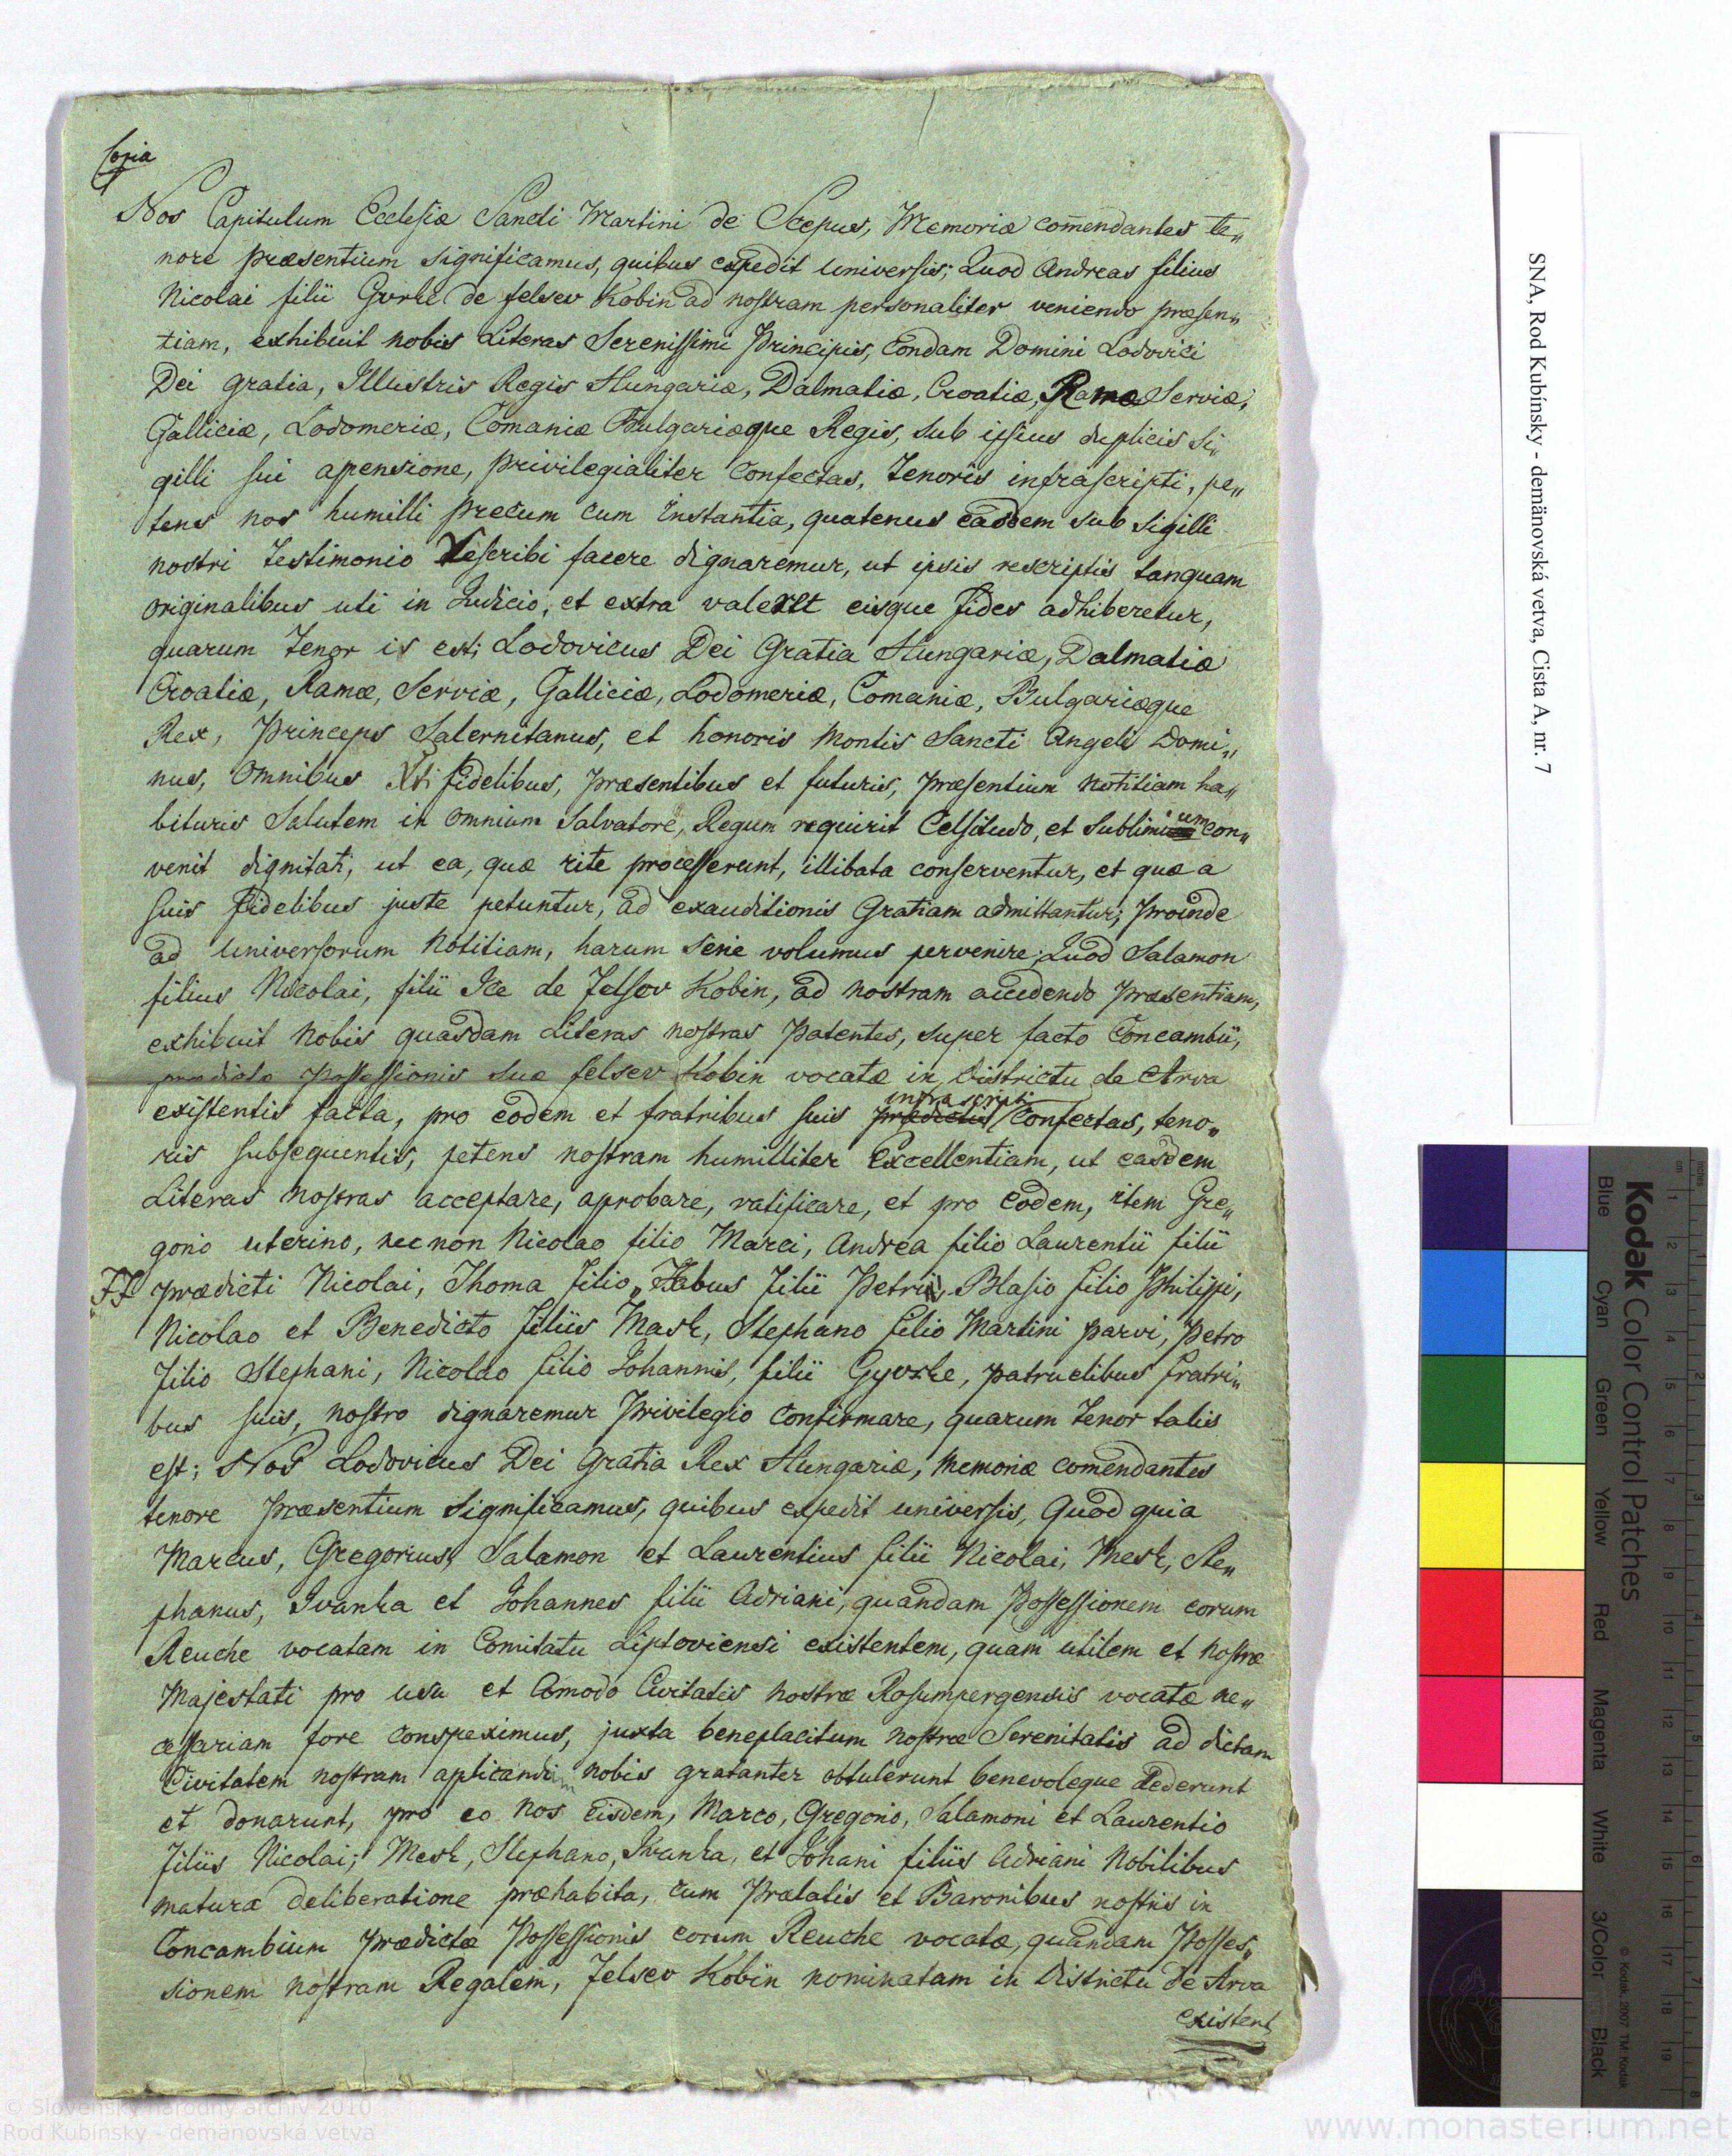 Copia
Nos Capitulum Ecclesiæ Sancti Martini de Scepus, Memoriæ com̄endantes te„
nore præsentium significamus, quibus expedit universis; Quod Andreas filius
Nicolai filii Gyrke de felsev Kobin ad nostram personaliter veniendo præsen„
tiam, exhibuit nobis Literas Serenissimi Principis, Condam Domini Lodovici
Dei gratia, Illustris Regis Hungariæ, Dalmatiæ, Croatiæ, Ramæ Serviæ,
Galliciæ, Lodomeriæ, Comaniæ Bulgariæque Regis, sub ipsius duplicis si„
gilli sui apensione, privilegialiter confectas, tenoris infrascripti, pe„
tens nos humilli precum cum instantia, quatenus easdem sub sigilli
nostri testimonio rescribi facere dignaremur, ut ipsis rescriptis tanquam
originalibus uti in Judicio, et extra valeret eisque fides adhiberetur,
quarum tenor is est; Lodovicus Dei Gratia Hungariæ, Dalmatiæ
Croatiæ, Ramæ, Serviæ, Galliciæ, Lodomeriæ, Comaniæ, Bulgariæque
Rex, Princeps Salernitanus, et honoris Montis Sancti Angeli Domi„
nus, Omnibus Xti fidelibus, præsentibus et futuris, præsentium notitiam ha„
bituris Salutem in omnium Salvatore, Regum requirit Celsitudo, et sublimium con„
venit dignitati, ut ea, quæ rite processerunt, illibata conserventur, et quæ a
suis fidelibus juste petuntur, ad exauditionis Gratiam admittantur; proinde
ad universorum notitiam, harum serie volumus pervenire; Quod Salamon
filius Nicolai, filii Ice de felsov Kobin, ad nostram accedendo præsentiam,
exhibuit nobis quasdam Literas nostras Patentes, super facto Concambii,
prædictæ possessionis suæ felsev Kobin vocatæ in Districtu de Arva
existentis facta, pro eodem et fratribus suis prædictis infrascripti confectas, teno„
ris subsequentis, petens nostram humilliter Excellentiam, ut easdem
Literas nostras acceptare, aprobare, ratificare, et pro eodem, item Gre„
gorio uterino, nec non Nicolao filio Marci, Andrea filio Laurentii filii
prædicti Nicolai, Thoma filio Fabus filii Petri, Blasio filio Philippi,
Nicolao et Benedicto filiis Mask, Stephano filio Martini parvi, Petro
filio Stephani, Nicolao filio Johannis, filii Gyorke, patruelibus fratri„
bus suis, nostro dignaremur Privilegio confirmare, quarum tenor talis
est; Nos Lodovicus Dei Gratia Rex Hungariæ, memoriæ comendantes
tenore præsentium significamus, quibus expedit universis, Quod quia
Marcus, Gregorius, Salamon et Laurentius filii Nicolai, Mesk, Ste„
phanus, Ivanka et Johannes filii Adriani, quandam Possessionem eorum
Reuche vocatam in Comitatu Liptoviensi existentem, quam utilem et nostræ
Majestati pro usu et Comodo Civitatis nostræ Rosumpergensis vocatæ ne„
cessariam fore conspeximus, juxta beneplacitum nostræ Serenitatis ad dictam
Civitatem nostram aplicandam nobis gratanter obtulerunt benevoleque dederunt
et donarunt, pro eo nos eisdem, Marco, Gregorio, Salamoni et Laurentio
filiis Nicolai; Mesk, Stephano, Ivanka, et Johani filiis Adriani Nobilibus
matura deliberatione præhabita, cum Prælatis et Baronibus nostris in
Concambium prædictæ Possessionis eorum Reuche vocatæ, quandam Posses„
sionem nostram Regalem, felsev Kobin nominatam in Districtu de Arva
existent
SNA, Rod Kubínsky - demänovská vetva, Cista A, nr. 7
Kodak Color Control Patches
Blue Cyan Green Yellow Red Magenta White 3/Color Black
© Kodak, 2007 TM: Kodak
© Slovenský národný archív 2010
Rod Kubínsky - demänovská vetva
www.monasterium.net